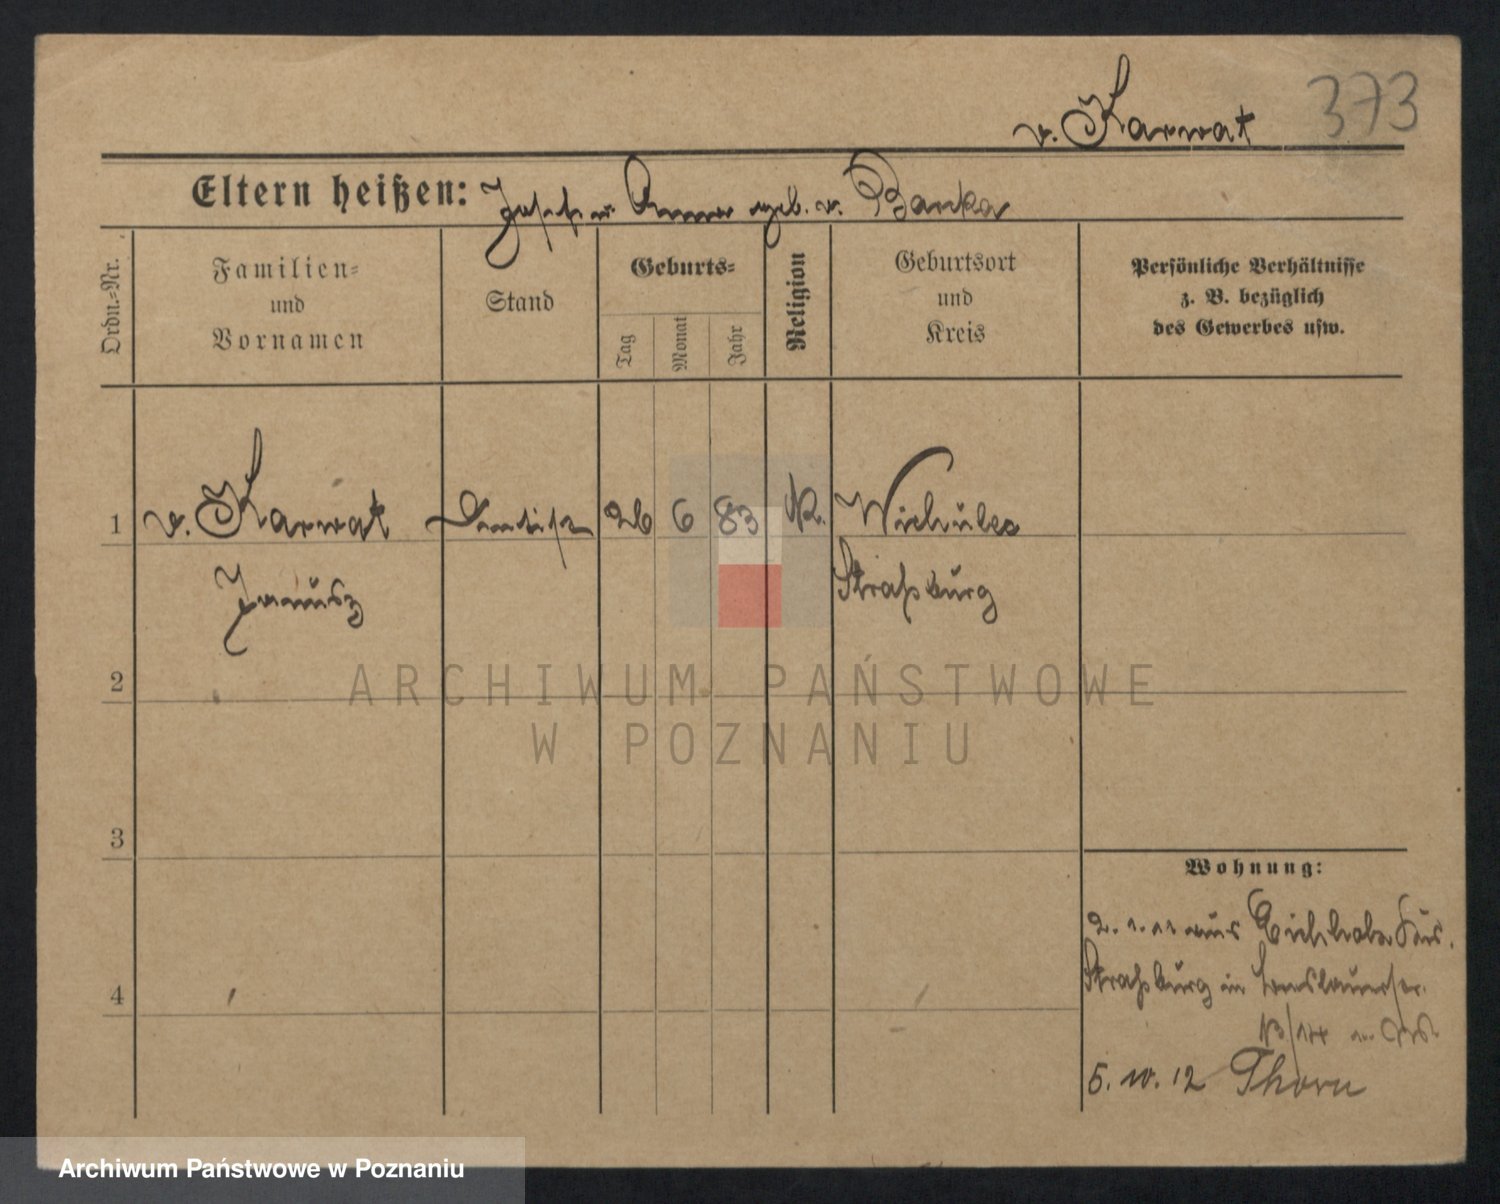 373
v. Karwat
Eltern heißen: Joseph u. Anna geb. v. Banka
Ordn.=Nr.
Familien=
und
Vornamen
Stand
Geburts=
Tag
Monat
Jahr
Religion
Geburtsort
und
Kreis
Persönliche Verhältnisse
z. B. bezüglich
des Gewerbes usw.
1 v. Karwat Dentist 26 6 83 K.
Janusz Straßburg
2
ARCHIWUM PAŃSTWOWE
W POZNANIU
3
Wohnung:
2. 1. 11 aus
Straßburg in
4
13/14
5. 10. 12 Thorn
Archiwum Państwowe w Poznaniu